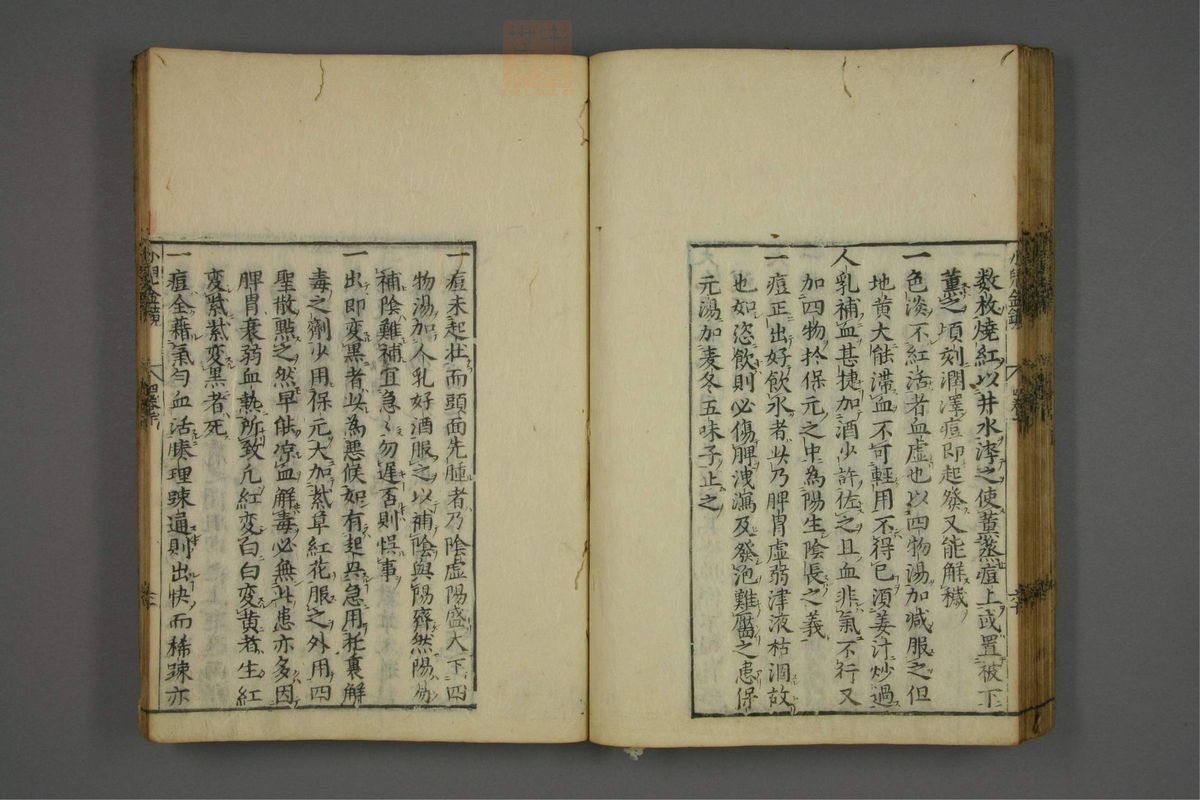 数枚燒紅以井水淬之使薫蒸痘上或置被下
薫之頃刻潤澤痘即起發又能解穢
一色淡不紅活者血虚也以四物湯加减服之但
地黄大能滞血不可輕用不得已湏姜汁炒過
人乳補血甚捷加酒少許佐之且血非氣不行又
加四物扵保元之中為陽生陰長之義
一痘正出好飲水者此乃脾胃虚弱津液枯涸故
也如恣飲則必傷脾洩瀉及發泡難靨之患保
元湯加麦冬五味子止之
一痘未起壮而頭面先腫者乃陰虚陽盛大下四
物湯加人乳好酒服之以補陰與陽齊然陽易
補陰難補宜急〻勿遅否則悮事
一出即変黒者此為悪候如有起與急用托裏解
毒之劑少用保元大加紫草紅花服之外用四
聖散㸃之然早能凉血解毒必無此患亦多因
脾胃衰弱血熱所致凢紅変白白変黄者生紅
変紫紫変黒者死
一痘全藉氣匀血活腠理踈通則出快而稀踈亦
小兒金鏡